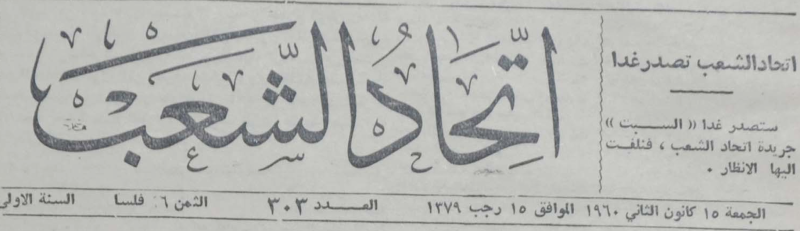 اتحاد الشعب تصدر غدا
ستصدر غدا «السبت»
جريدة اتحاد الشعب ، فنلفت
اليها الانظار .
اِتِّحَادُ الشَّعبْ
الجمعة ١٥ كانون الثاني ١٩٦٠ الموافق ١٥ رجب ١٣٧٩ العـــدد ٣٠٣ الثمن ١٦ فلسا السنة الاولى